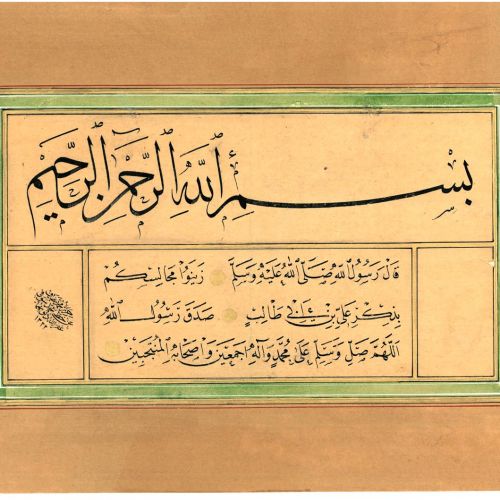 بسم الله الرحمن الرحيم
قال رسول الله صلى الله عليه وسلم زينوا مجالسكم
بذكر علي بن أبي طالب صدق رسول الله
اللهم صل وسلم على محمد وآله اجمعين واصحابه المنتجبين